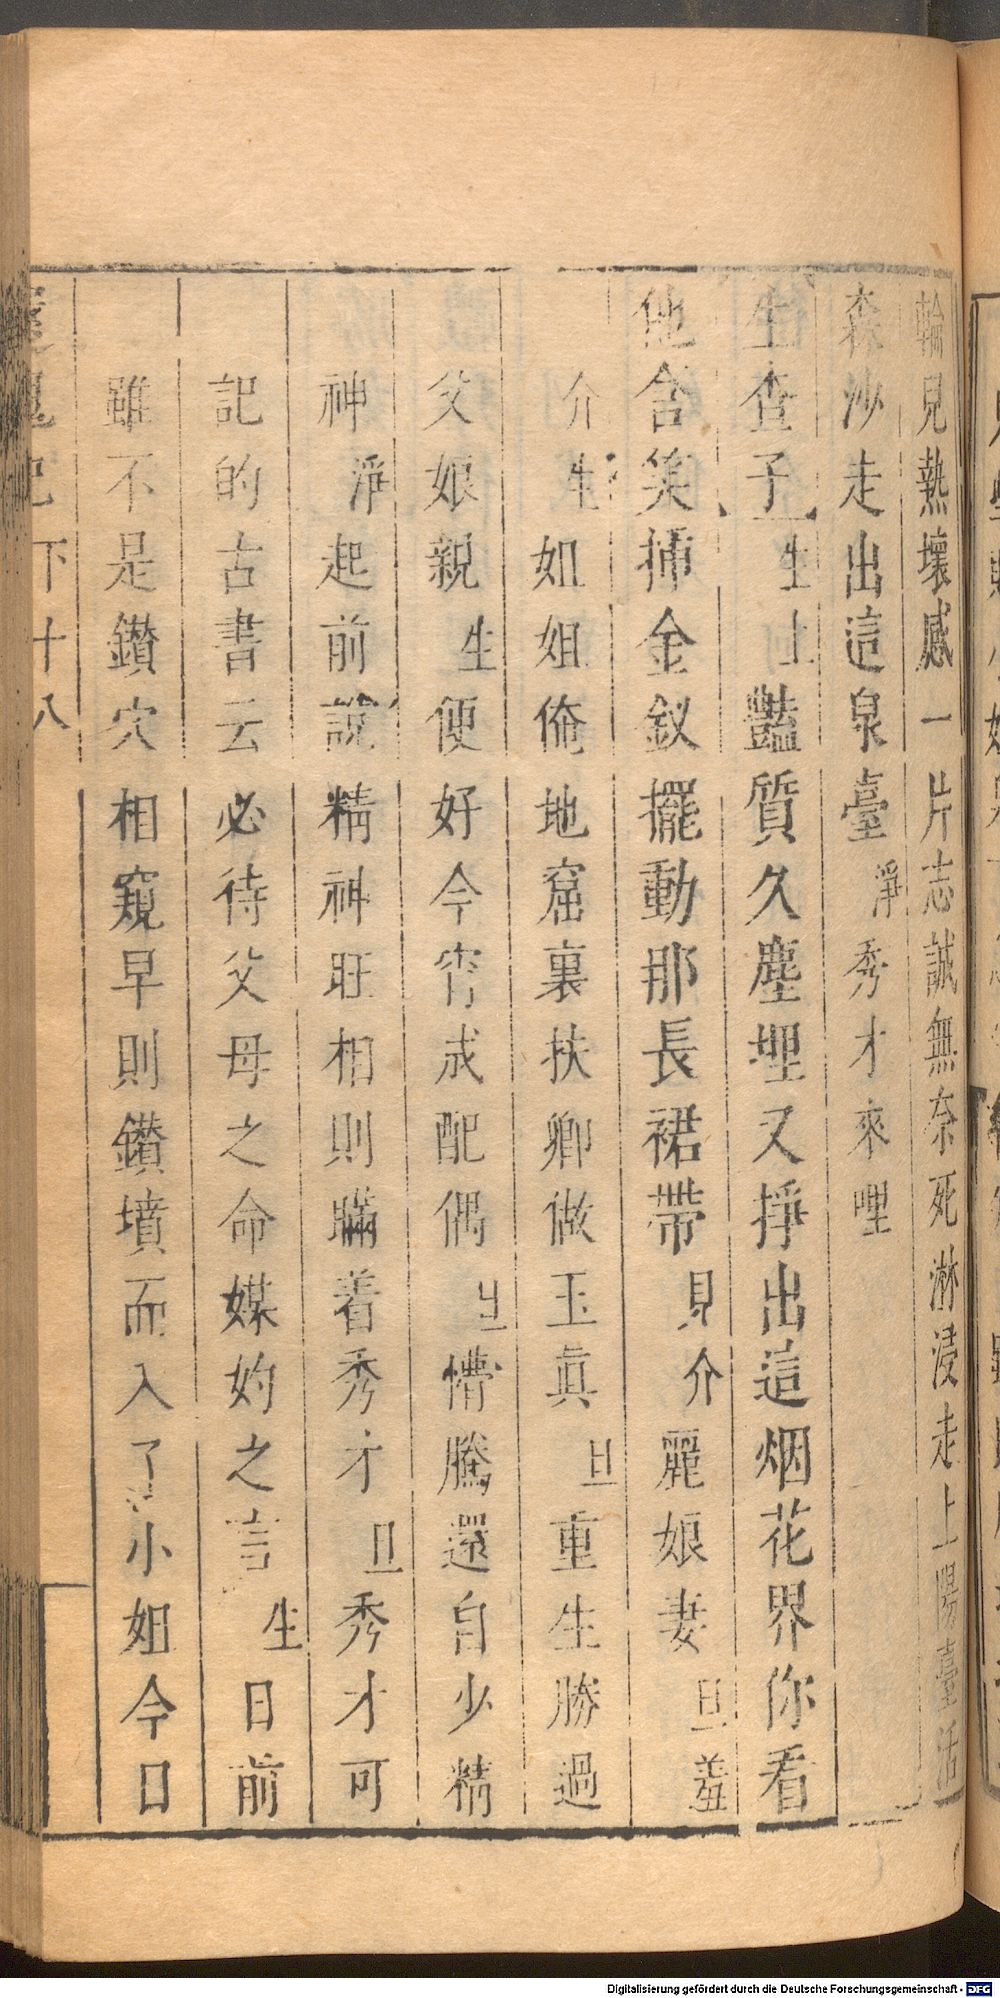 輪見熱壞感一片志誠無奈死淋浸走上陽臺活
森沙走出這泉臺淨秀才來哩
生查子生上豔質久塵埋又掙出這烟花界你看
他含笑揷金釵擺動那長裙帶見介麗娘妻旦羞
介生如姐俺地窟裏扶卿做玉眞旦重生勝過
父娘親生便好今宵成配偶旦懵騰還自少精
神淨起前說精神旺相則瞞着秀才旦秀才可
記的古書云必待父母之命媒妁之言生日前
雖不是鑽穴相窺早則鑽墳而入了小姐今日
還魂記 下十八
Digitalisierung gefördert durch die Deutsche Forschungsgemeinschaft - DFG